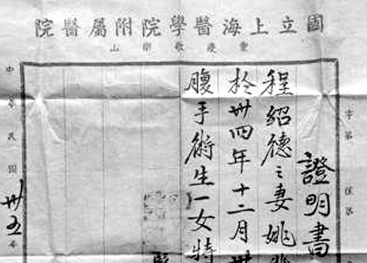 國立上海醫學院附屬醫院
重慶歌樂山
字第 號第
證明書
程紹德之妻姚
於卅四年十二月卅
腹手術生一女特
中華民國卅五年